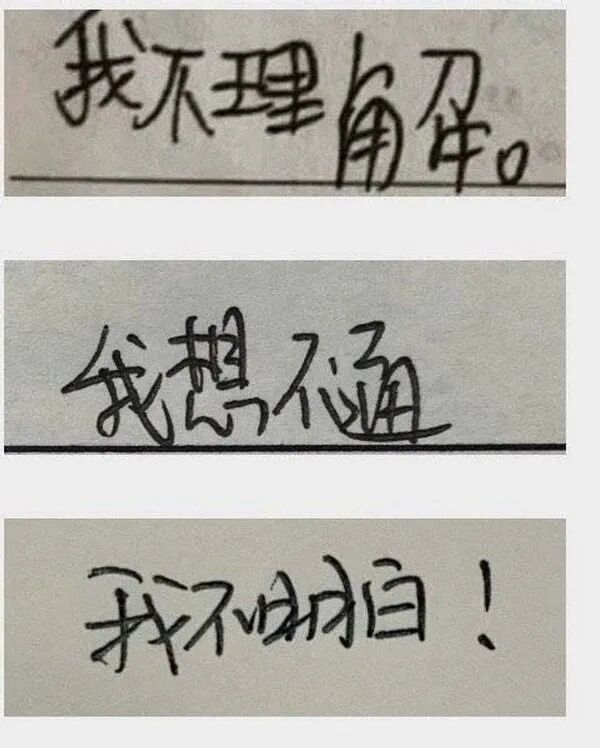 我不理解。
我想不通
我不明白！